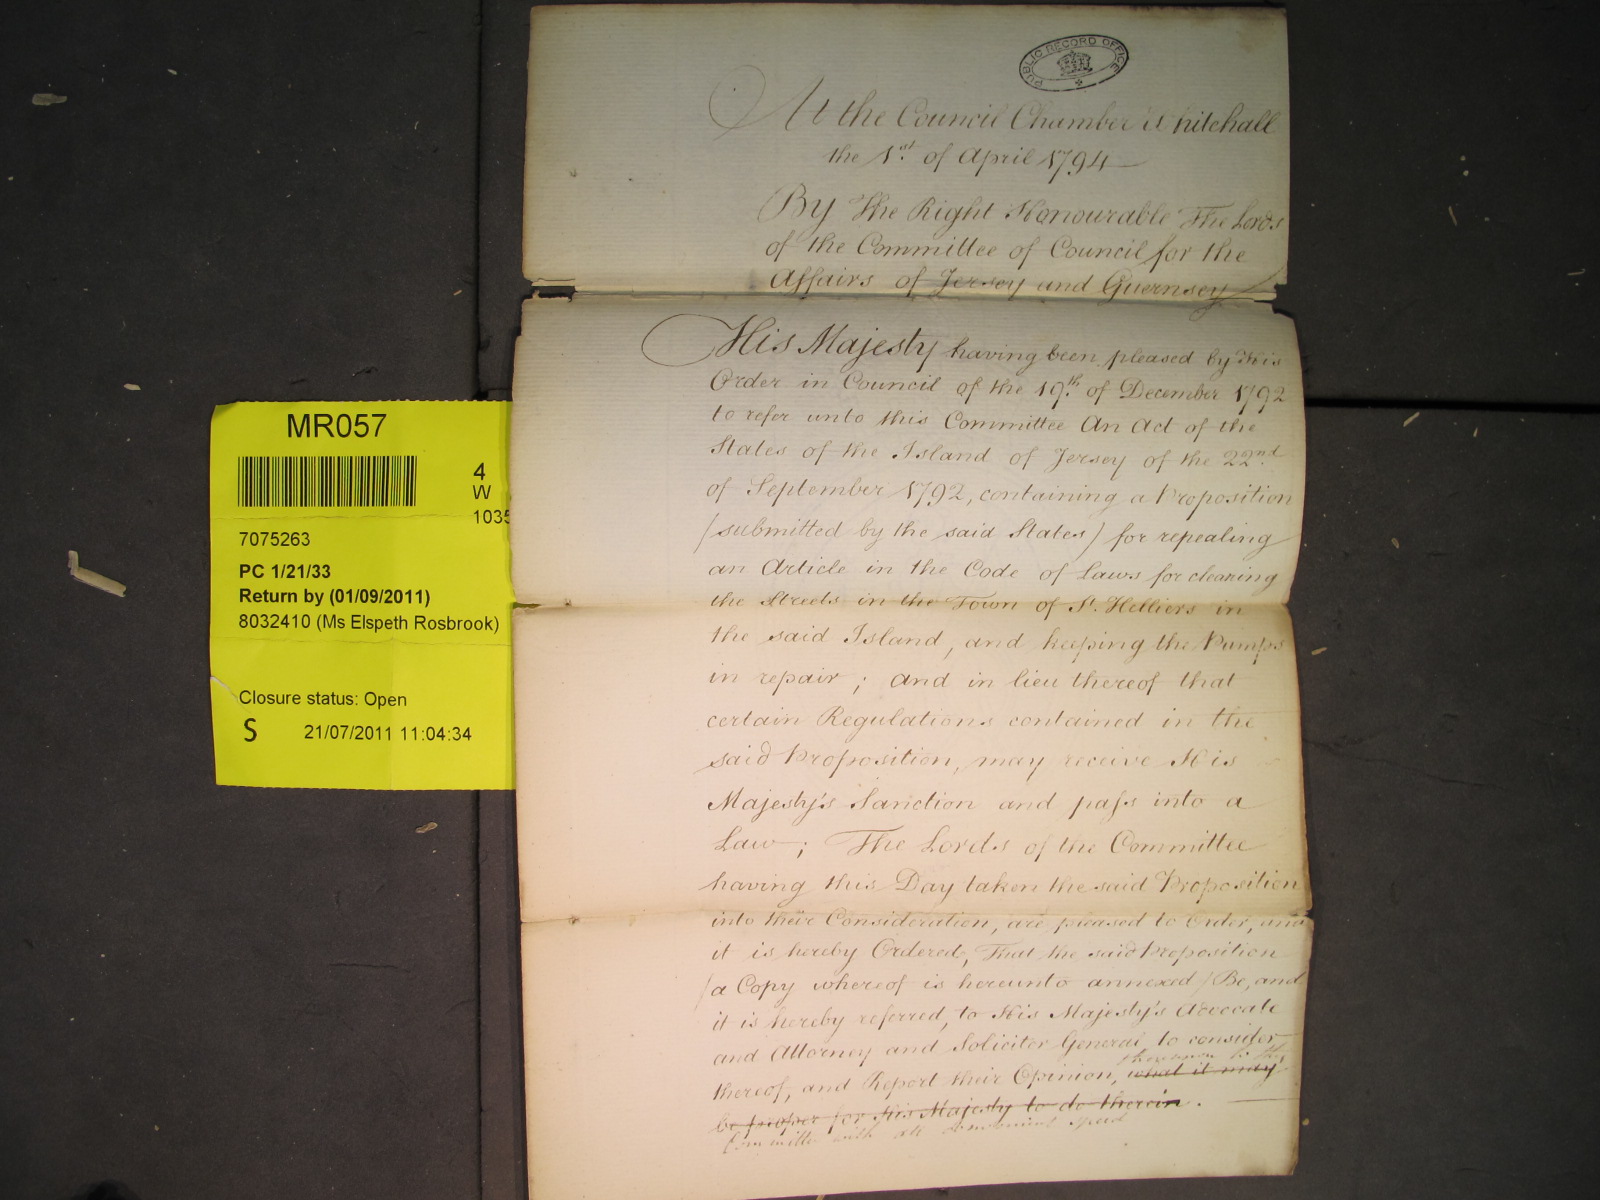 PUBLIC RECORD OFFICE
At the Council Chamber Whitehall
the 1st. of April 1794
By the Right Honourable The Lords
of the Committee of Council for the
Affairs of Jersey and Guernsey
His Majesty having been pleased by His
Order in Council of the 19th. of December 1792
to refer unto this Committee An Act of the
States of the Island of Jersey of the 22nd.
of September 1792, containing a Proposition
(submitted by the said States) for repealing
an Article in the Code of Laws for cleaning
the Streets in the Town of St. Helliers in
the said Island, and keeping the Pumps
in repair; and in lieu thereof that
certain Regulations contained in the
said Proposition, may receive His
Majesty's Sanction and pass into a
Law; The Lords of the Committee
having this Day taken the said Proposition
into their Consideration, are pleased to Order, and
it is hereby Ordered, That the said Proposition
(a Copy whereof is hereunto annexed) Be, and
it is hereby referred, to His Majesty's Advocate
and Attorney and Solicitor General, to consider
thereof, and Report their Opinion, what it may
thereupon to the
be proper for His Majesty to do therein.
Committee with all convenient speed
MR057
4
W
1035
7075263
PC 1/21/33
Return by (01/09/2011)
8032410 (Ms Elspeth Rosbrook)
Closure status: Open
S 21/07/2011 11:04:34